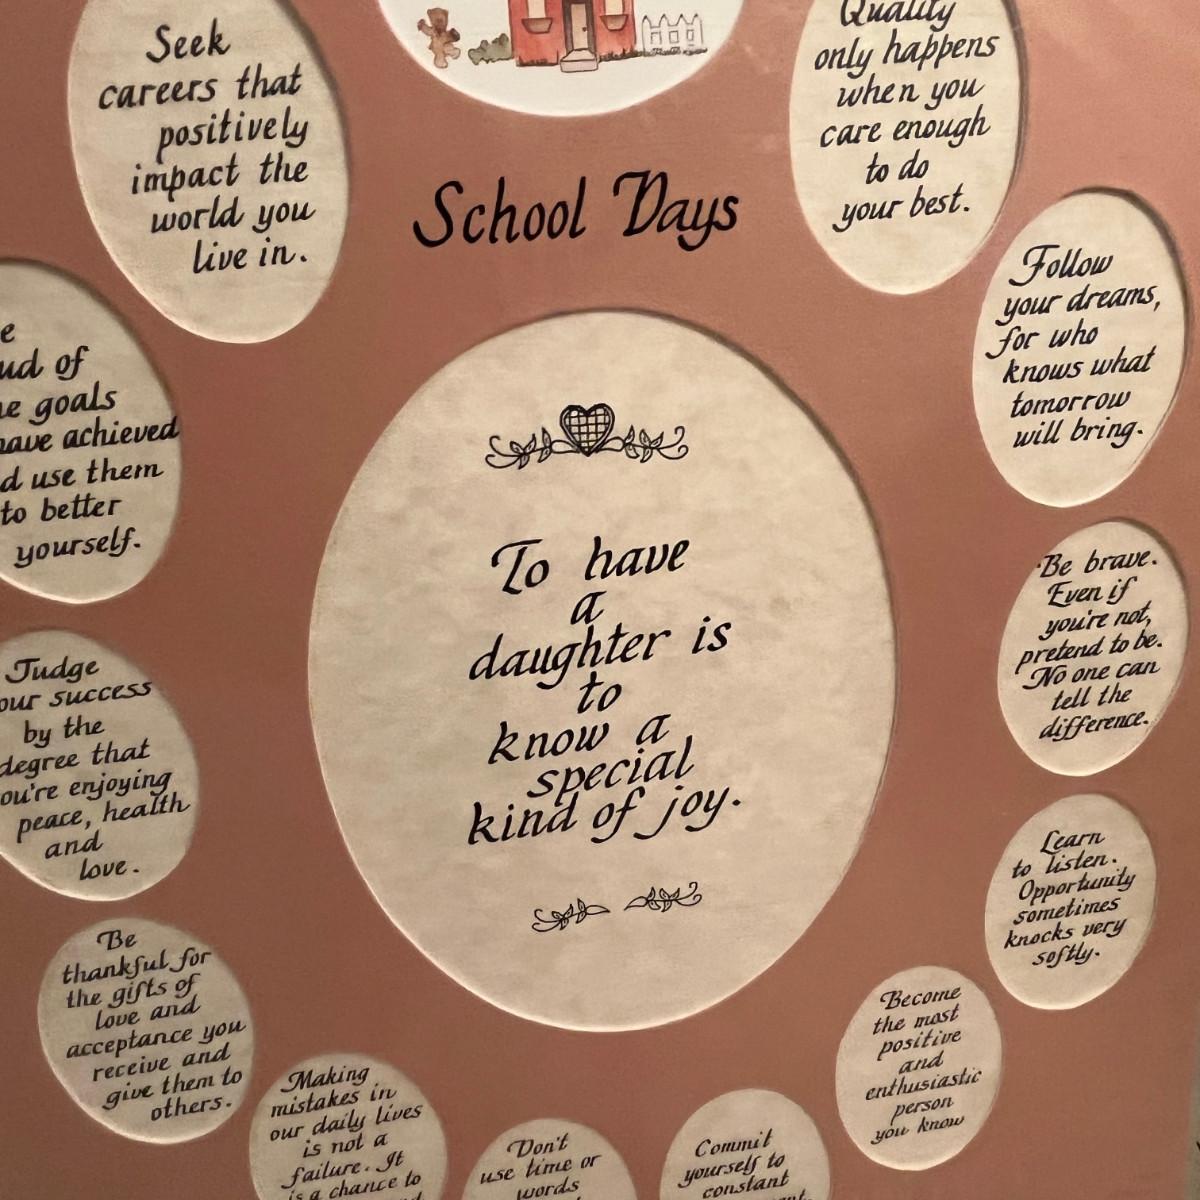 Seek
careers that
positively
impact the
world you
live in.
Quality
only happens
when you
care enough
to do
your best.
School Days
Follow
your dreams,
for who
knows what
tomorrow
will bring.
ud of
goals
have achieved
use them
to better
yourself.
To have
a
daughter is
to
know a
special
kind of joy.
Be brave.
Even if
you're not,
pretend to be.
No one can
tell the
difference.
Judge
our success
by the
degree that
ou're enjoying
peace, health
and
love.
Learn
to listen.
Opportunity
sometimes
knocks very
softly.
Be
thankful for
the gifts of
love and
acceptance you
receive and
give them to
others.
Become
the most
positive
and
enthusiastic
person
you know
Making
mistakes in
our daily lives
is not a
failure. It
is a chance to
Don't
use time or
words
Commit
yourself to
constant